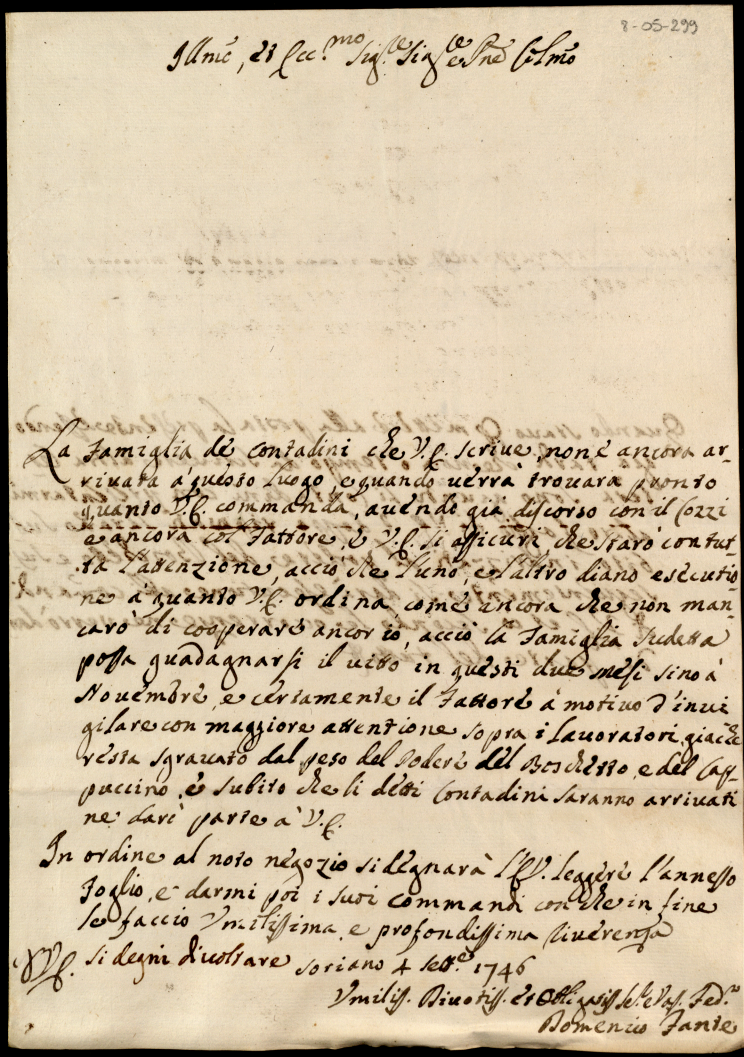 8-05-299
Illmo, et Ecc.mo Sig.re Sig.re e Pne Colmo
La Famiglia de contadini che V.E. scrive, non è ancora ar-
rivata à questo luogo, e quando verrà trovarà pronto
quanto V.E. commanda, avendo già discorso con il Cozzi
e ancora col Fattore, e V.E. si assicuri, che starò con tut-
ta l'attenzione, acciò che l'uno, e l'altro diano esecutio-
ne à quanto V.E. ordina, come ancora che non man-
carò di cooperare ancor io, acciò la Famiglia sudetta
possa guadagnarsi il vitto in questi due mesi sino à
Novembre, e certamente il Fattore à motivo d'invi-
gilare con maggiore attentione sopra i Lavoratori, giache
resta sgravato dal peso del Podere del Boschetto, e del Cap-
puccino, e subito che li detti Contadini saranno arrivati
ne darò parte à V.E.
In ordine al noto negozio si degnarà l'E.V. leggere l'annesso
Foglio, e darmi poi i suoi commandi con che in fine
le faccio Umilissima, e profondissima riverenza
V.E. si degni di voltare Soriano 4 Sett.e 1746
Umiliss. Divotiss. et Obligatiss. Se.e Vas. Fed.mo
Domenico Fante